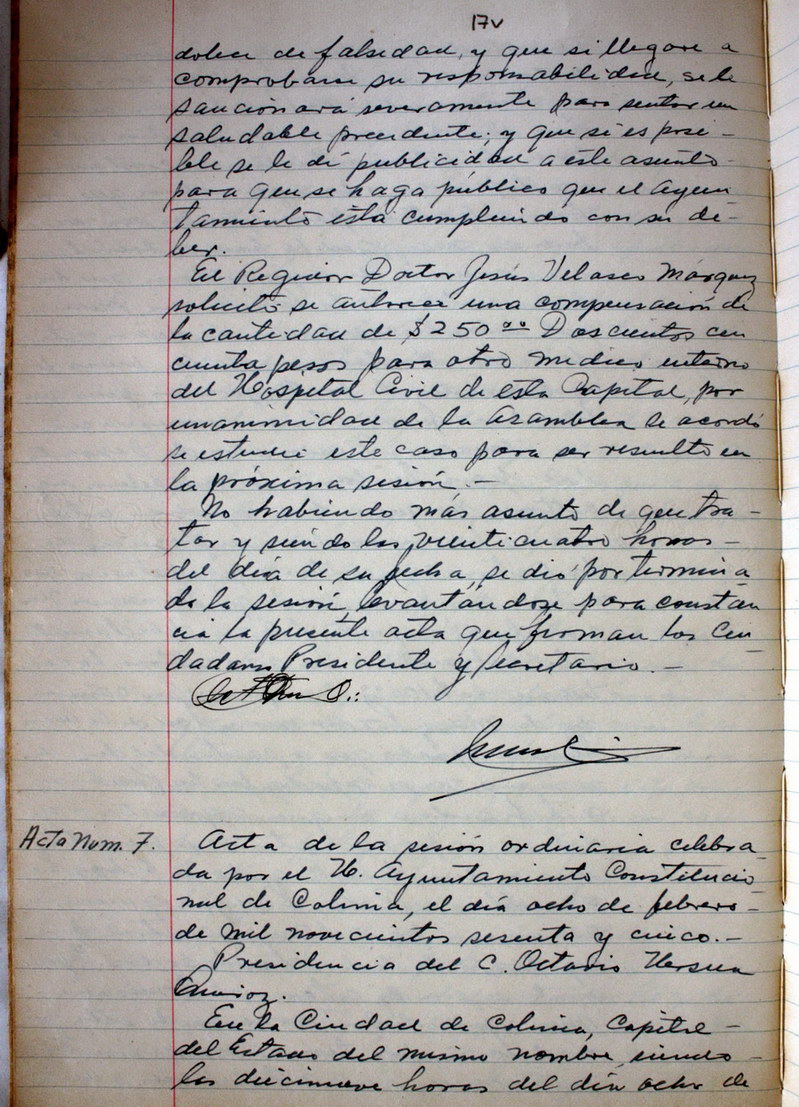 17v
dolece de falsedad, y que si llegare a
comprobarse su responsabilidad, se le
sancionará severamente para sentar un
saludable precedente; y que si es posi-
ble se le dé publicidad a este asunto
para que se haga público que el Ayun
tamiento está cumpliendo con su de-
ber.
El Regidor Doctor Jesús Velasco Márquez
solicitó se autorice una compensación de
la cantidad de $250.00 Doscientos cin
cuenta pesos para otro medico interno
del Hospital Civil de esta Capital, por
unanimidad de la Asamblea se acordó
se estudie este caso para ser resuelto en
la próxima sesión.-
No habiendo más asunto de que tra-
tar y siendo las veinticuatro horas-
del día de su fecha, se dió por termina
da la sesión, levantándose para constan
cia la presente acta que firman los Ciu
dadanos Presidente y Secretario.-
Acta Num. 7.
Acta de la sesión ordinaria celebra-
da por el H. Ayuntamiento Constitucio
nal de Colima, el día ocho de febrero-
de mil novecientos sesenta y cinco.-
Presidencia del C. Octavio
En la Ciudad de Colima, Capital-
del Estado del mismo nombre, siendo
las diecinueve horas del día ocho de